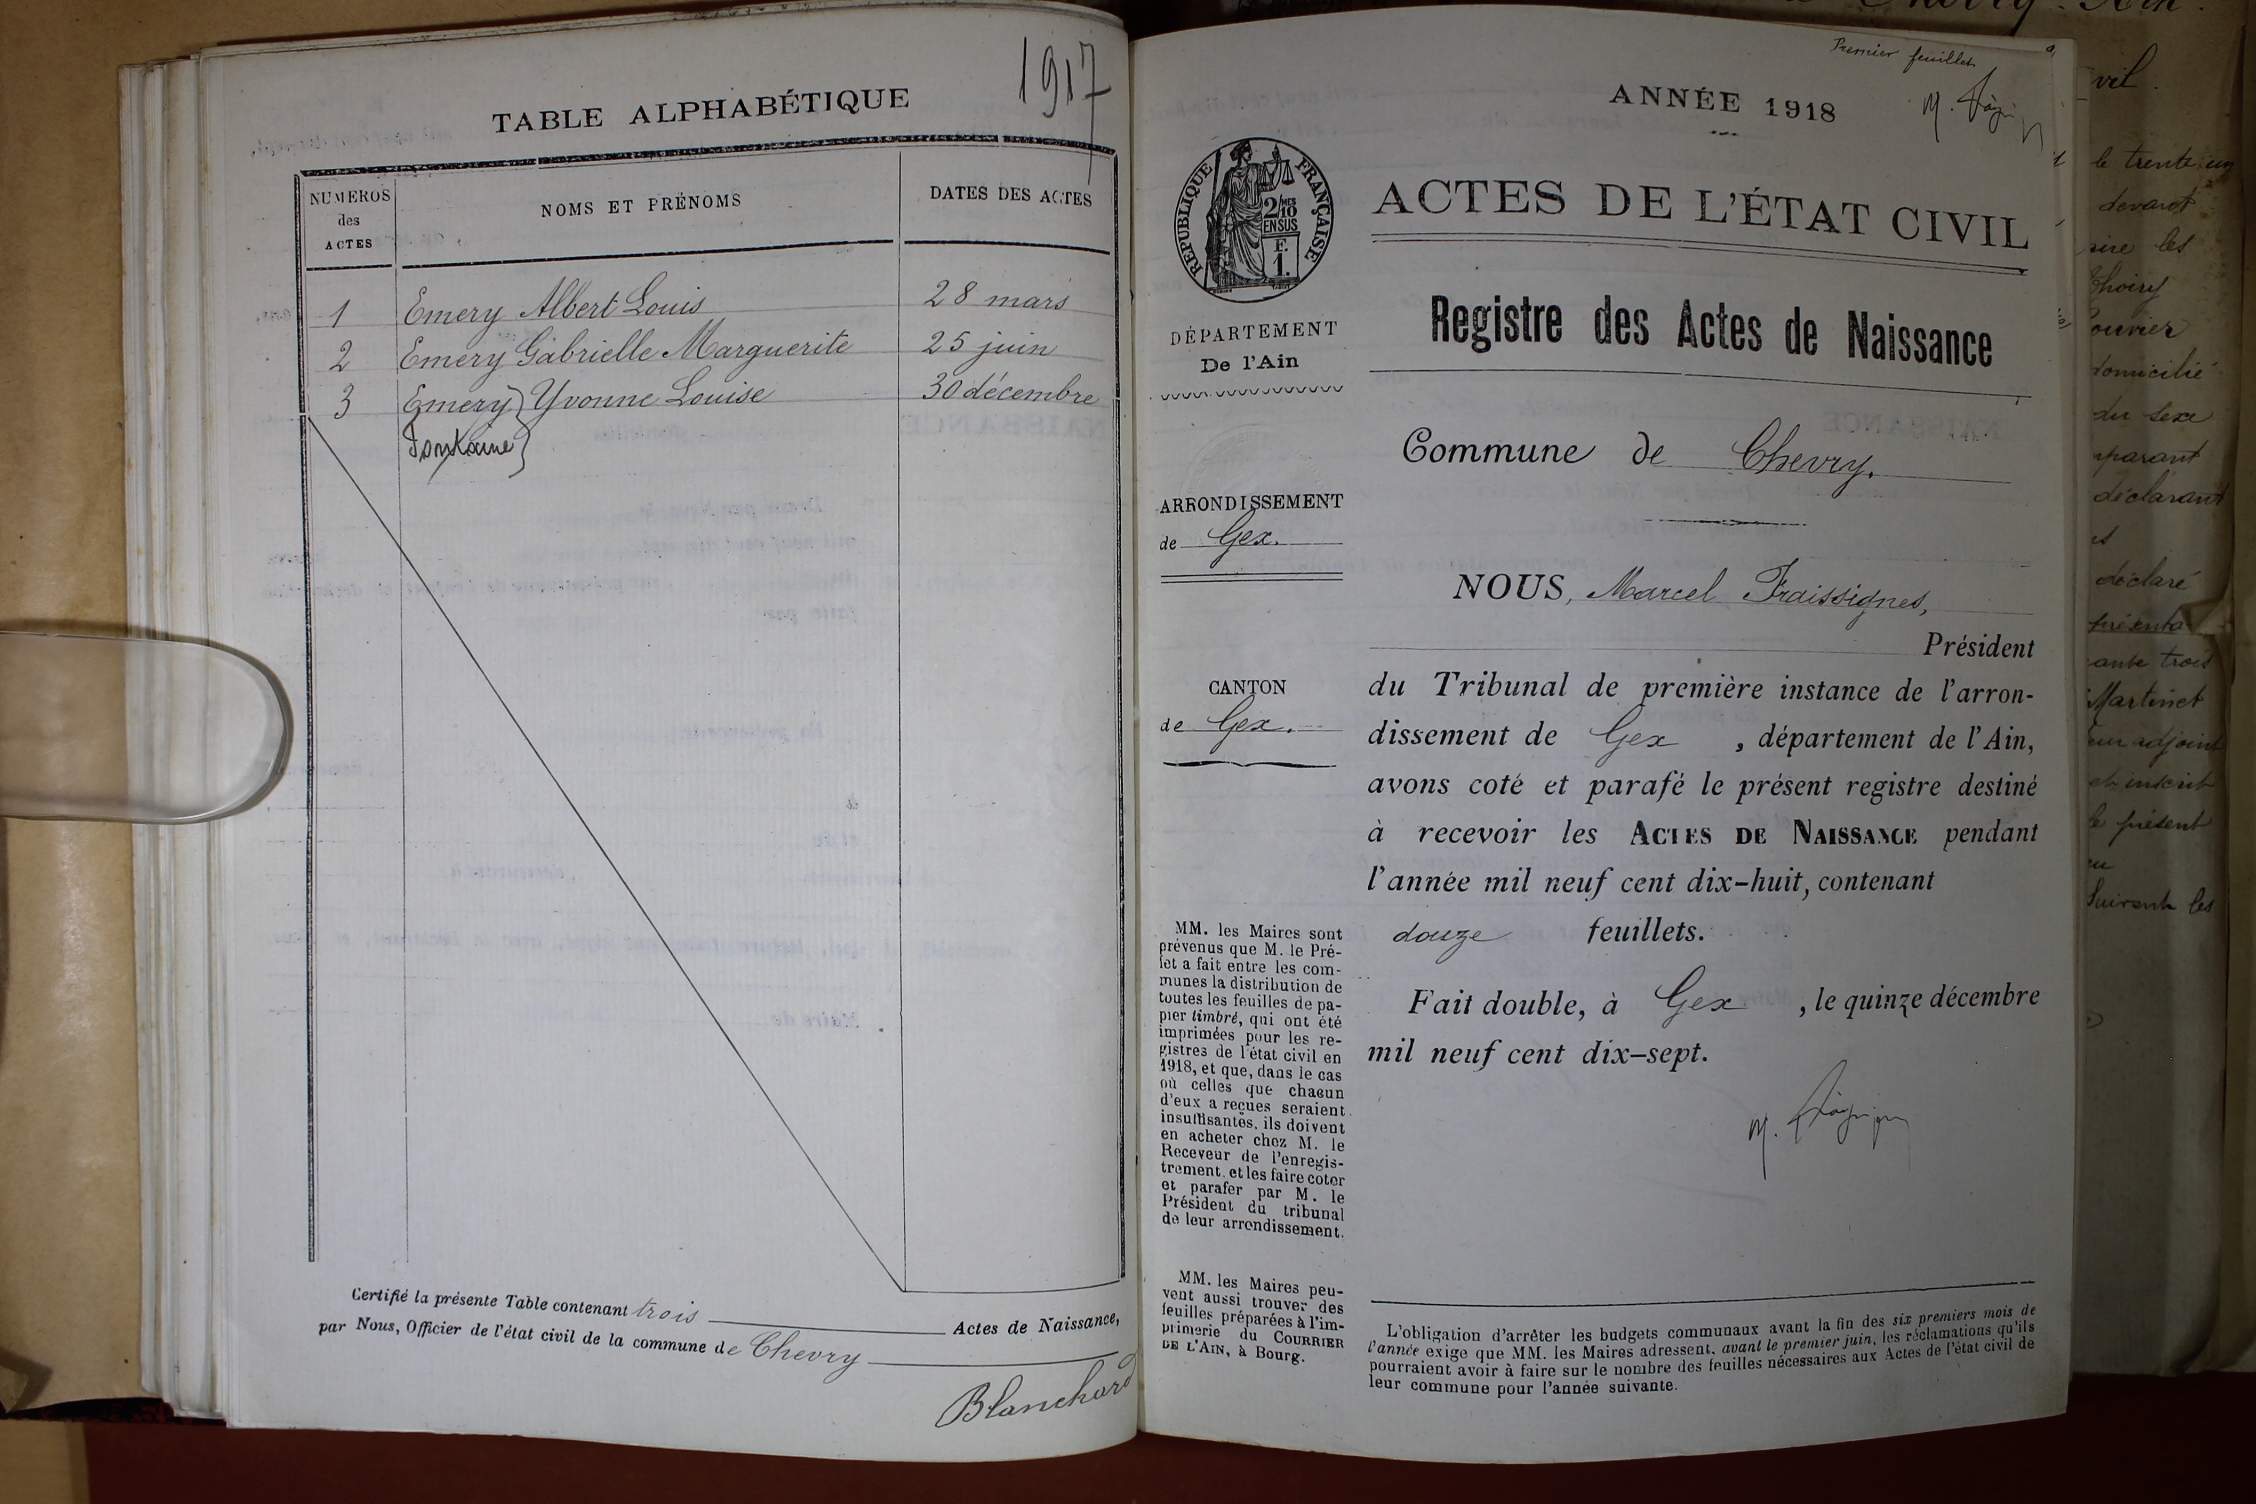 1917
TABLE ALPHABÉTIQUE
NUMÉROS
des
ACTES
NOMS ET PRÉNOMS
DATES DES ACTES
1 Emery Albert Louis 28 mars
2 Emery Gabrielle Marguerite 25 juin
3 Emery } Yvonne Louise 30 décembre
Fontaine }
Certifié la présente Table contenant trois Actes de Naissance,
par Nous, Officier de l'état civil de la commune de Chevry
Blanchard
Premier feuillet
ANNÉE 1918
RÉPUBLIQUE FRANÇAISE
2/10
MES
EN SUS
F.
1.
DÉPARTEMENT
De l'Ain
ARRONDISSEMENT
de Gex.
CANTON
de Gex.
MM. les Maires sont
prévenus que M. le Pré-
fet a fait entre les com-
munes la distribution de
toutes les feuilles de pa-
pier timbré, qui ont été
imprimées pour les re-
gistres de l'état civil en
1918, et que, dans le cas
où celles que chacun
d'eux a reçues seraient
insuffisantes, ils doivent
en acheter chez M. le
Receveur de l'enregis-
trement, et les faire coter
et parafer par M. le
Président du tribunal
de leur arrondissement.
MM. les Maires peu-
vent aussi trouver des
feuilles préparées à l'im-
primerie du COURRIER
DE L'AIN, à Bourg.
ACTES DE L'ÉTAT CIVIL
Registre des Actes de Naissance
Commune de Chevry.
NOUS, Marcel Fraissignes,
Président
du Tribunal de première instance de l'arron-
dissement de Gex, département de l'Ain,
avons coté et parafé le présent registre destiné
à recevoir les ACTES DE NAISSANCE pendant
l'année mil neuf cent dix-huit, contenant
douze feuillets.
Fait double, à Gex, le quinze décembre
mil neuf cent dix-sept.
L'obligation d'arrêter les budgets communaux avant la fin des six premiers mois de
l'année exige que MM. les Maires adressent, avant le premier juin, les réclamations qu'ils
pourraient avoir à faire sur le nombre des feuilles nécessaires aux Actes de l'état civil de
leur commune pour l'année suivante.
le trente un
devant
les
Thoiry
domicilié
du sexe
déclarant
déclaré
présenta
trois
Martinet
adjoint
et inscrit
le présent
Suivent les